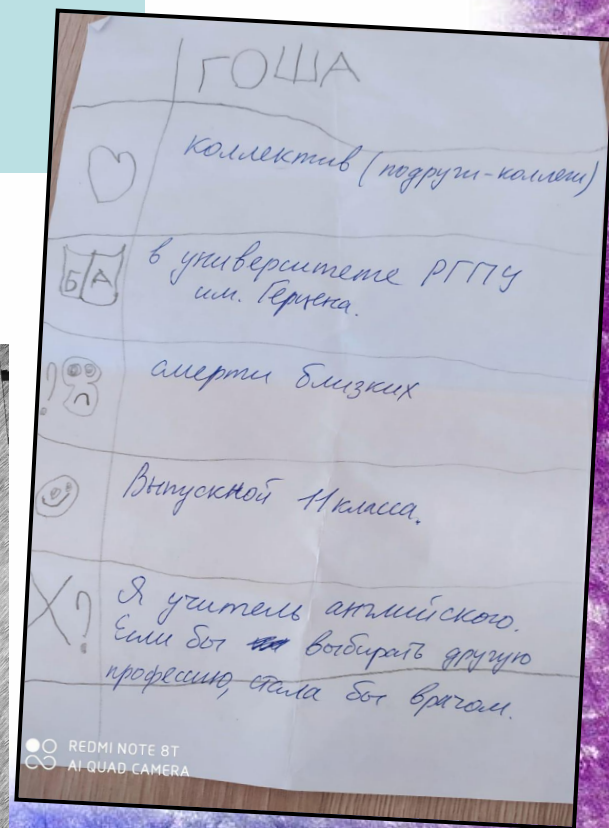 ГОША
коллектив (подруги-коллеги)
БА
в университете РГПУ
им. Герцена.
?
смерти близких
Выпускной 11 класса.
Х?
Я учитель английского.
Если бы выбирать другую
профессию, стала бы врачом.
REDMI NOTE 8T
AI QUAD CAMERA